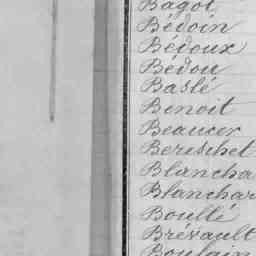 Bagot
Bédoin
Bédoux
Bédou
Baslé
Benoit
Beaucer
Bereschet
Blancha
Blanchar
Boullé
Brévault
Boulain